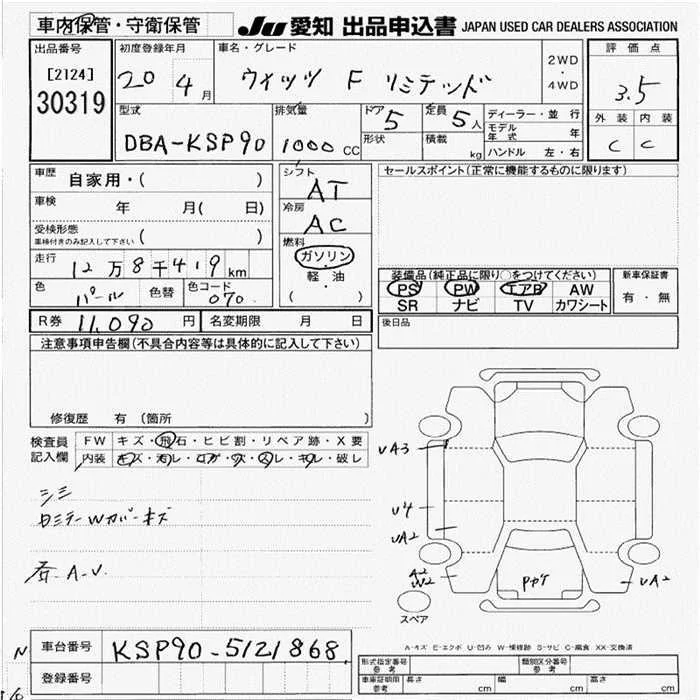 車内保管・守衛保管 JU 愛知 出品申込書 JAPAN USED CAR DEALERS ASSOCIATION
出品番号 初度登録年月 車名・グレード 2WD・4WD 評価点
[2124] 20 4月 ウィッツ F リミテッド 3.5
30319
型式 排気量 ドア 5 定員 5人 ディーラー・並行 外装 内装
DBA-KSP90 1000CC 形状 積載 kg モデル年式 年 C C
ハンドル 左・右
車歴 自家用・( ) シフト AT セールスポイント(正常に機能するものに限ります)
車検 年 月( 日) 冷房 AC
受検形態 車検付きのみ記入して下さい ( ) 燃料
走行 12万8千419km ガソリン・軽・油
色 パール 色替 色コード 070 ( )
装備品(純正品に限り○をつけてください) 新車保証書
PS PW エアB AW 有・無
SR ナビ TV カワシート
R券 11,090円 名変期限 月 日 後日品
注意事項申告欄(不具合内容等は具体的に記入して下さい)
修復歴 有 (箇所 )
検査員 FW キズ・飛石・ヒビ割・リペア跡・X要
記入欄 内装 キズ・汚レ・コゲ・穴・スレ・キレ・破レ
シミ
Wカバーキズ
A.V.
UA3
U4
UA2
A2
W2
UA2
スペア
A-キズ E-エクボ U-凹み W-補修跡 S-サビ C-腐食 XX-交換済
車台番号 KSP90-5121868
登録番号
形式指定番号 参考 類別区分番号 参考
車庫証明用 参考 長さ cm 幅 cm 高さ cm